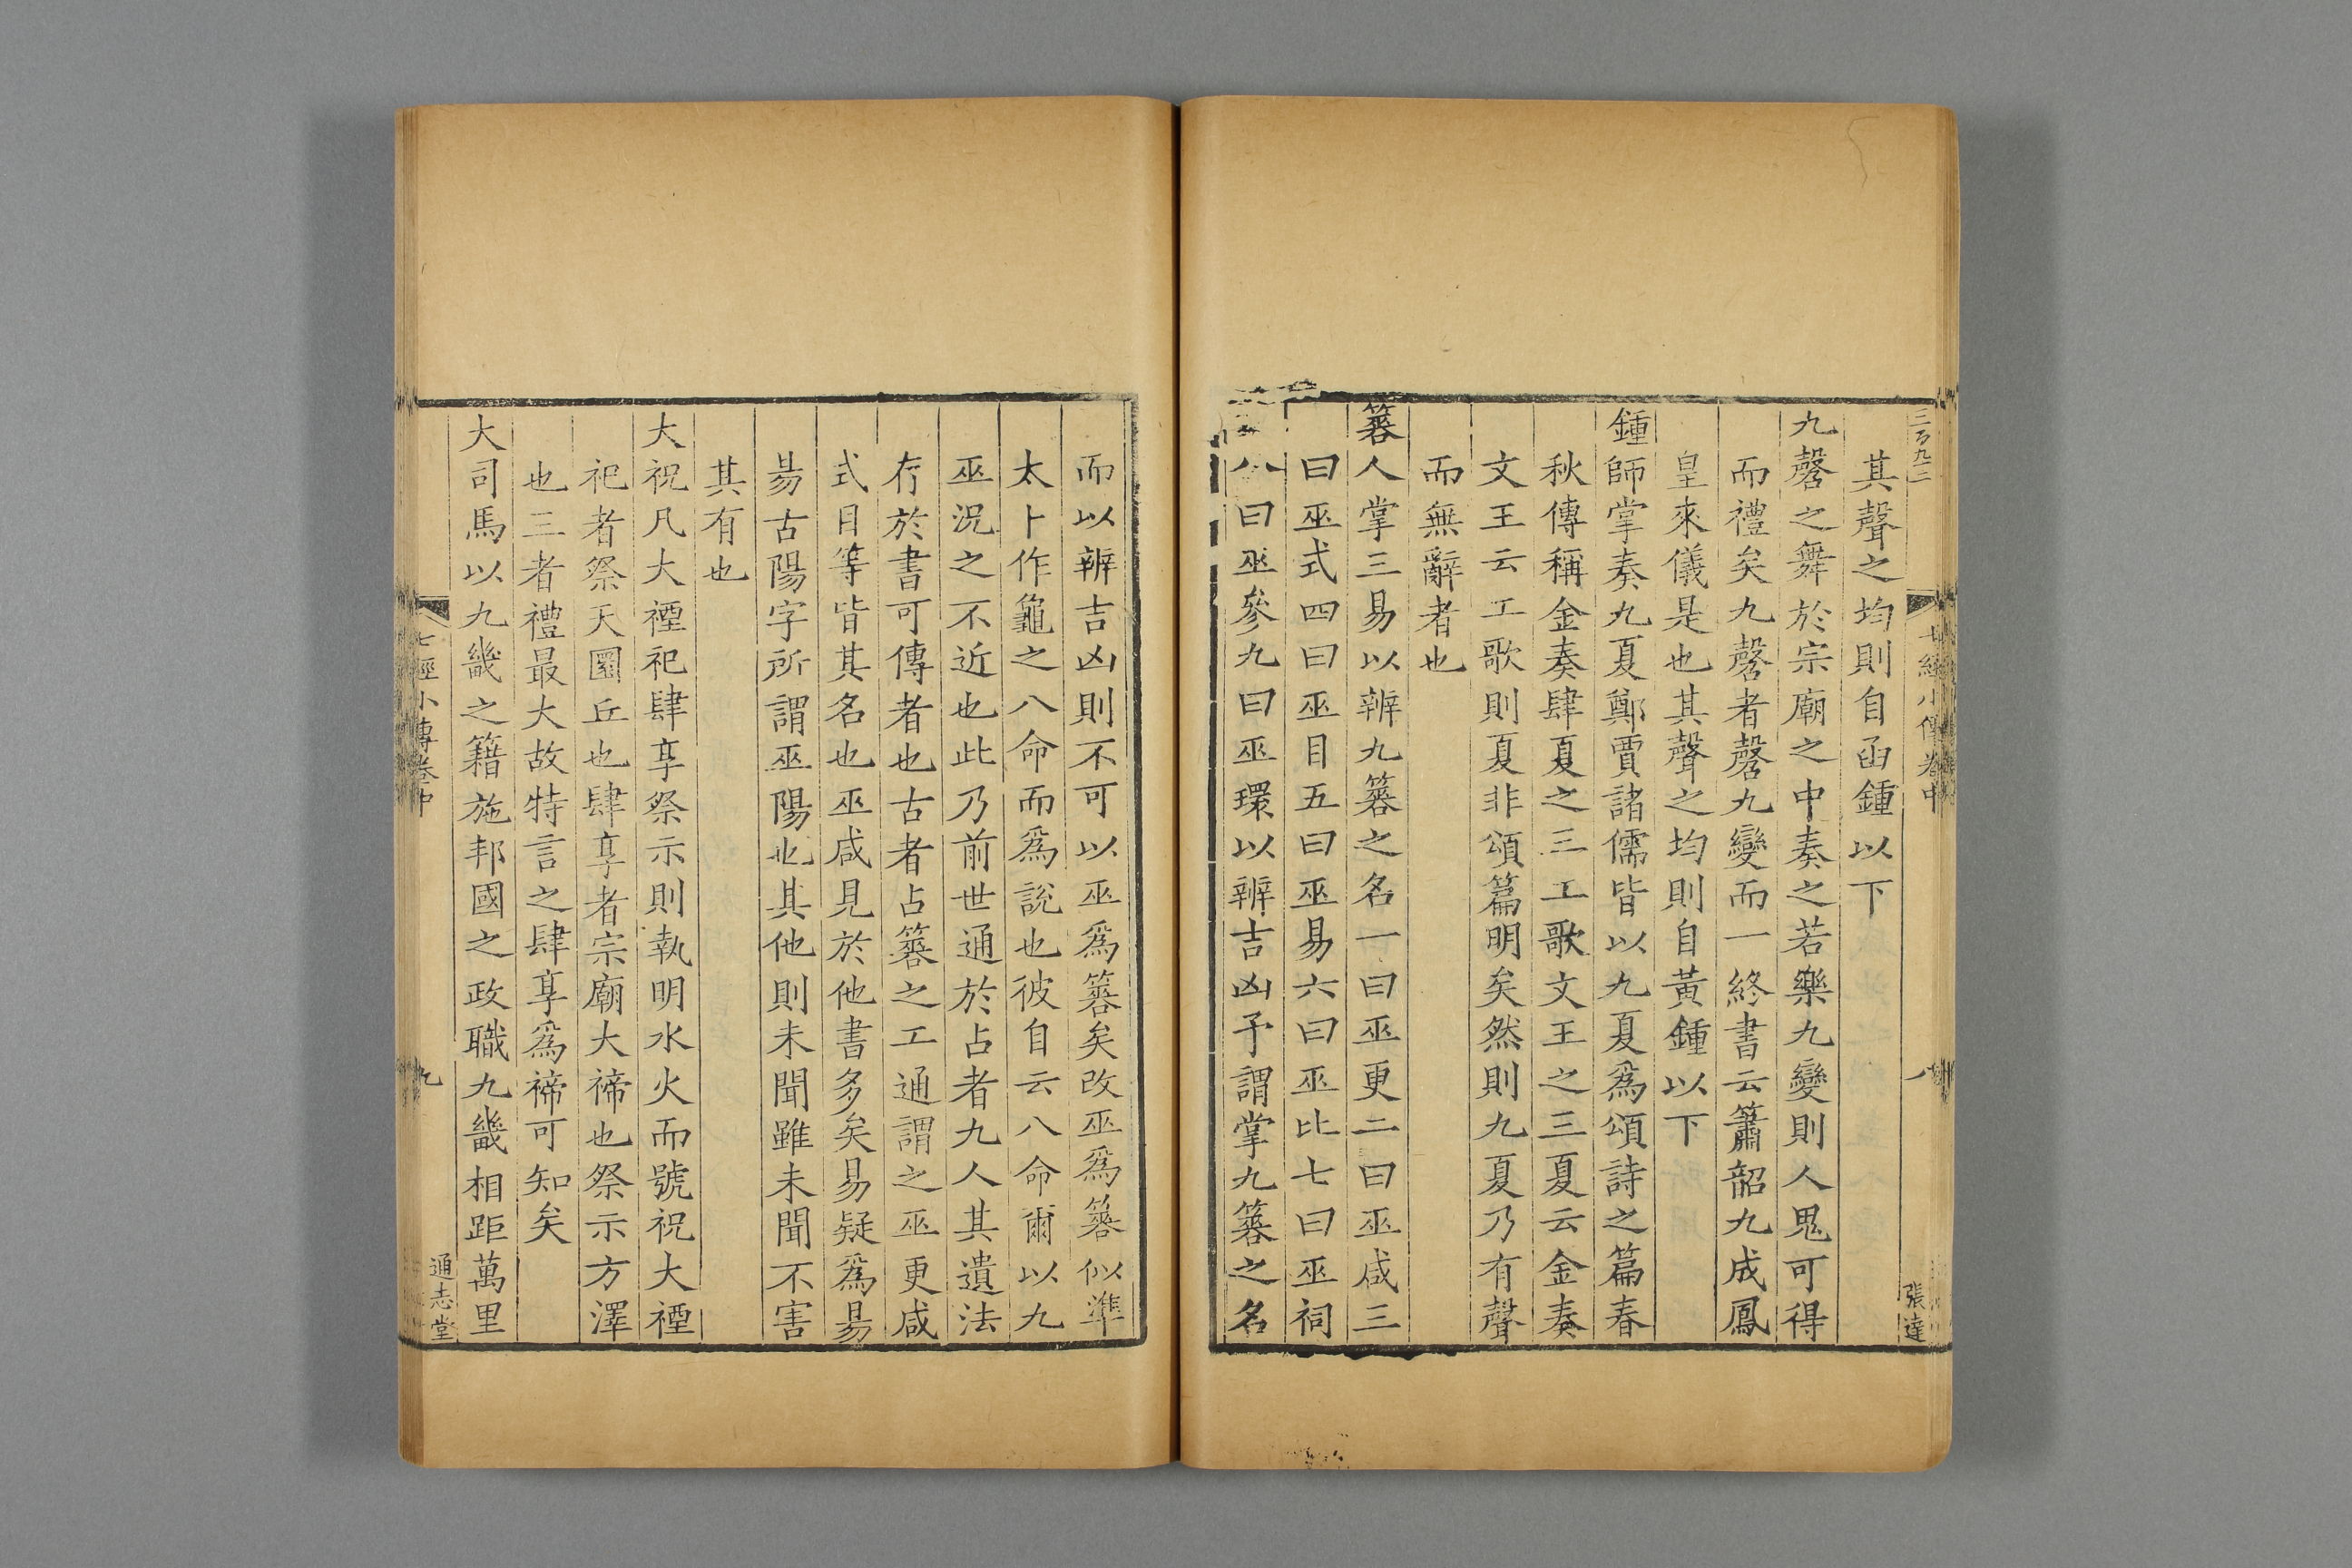 三百九二
七經小傳卷中
八
張達
其聲之均則自函鍾以下
九磬之舞於宗廟之中奏之若樂九變則人鬼可得
而禮矣九磬者磬九變而一終書云簫韶九成鳳
皇來儀是也其聲之均則自黃鍾以下
鍾師掌奏九夏鄭賈諸儒皆以九夏爲頌詩之篇春
秋傳稱金奏肆夏之三工歌文王之三夏云金奏
文王云工歌則夏非頌篇明矣然則九夏乃有聲
而無辭者也
簭人掌三易以辨九簭之名一曰巫更二曰巫咸三
曰巫式四曰巫目五曰巫易六曰巫比七曰巫祠
八曰巫參九曰巫環以辨吉凶予謂掌九簭之名
而以辨吉凶則不可以巫爲簭矣改巫爲簭似準
太卜作龜之八命而爲說也彼自云八命爾以九
巫況之不近也此乃前世通於占者九人其遺法
存於書可傳者也古者占簭之工通謂之巫更咸
式目等皆其名也巫咸見於他書多矣易疑爲昜
昜古陽字所謂巫陽也其他則未聞雖未聞不害
其有也
大祝凡大禋祀肆享祭示則執明水火而號祝大禋
祀者祭天圜丘也肆享者宗廟大禘也祭示方澤
也三者禮最大故特言之肆享爲禘可知矣
大司馬以九畿之籍施邦國之政職九畿相距萬里
七經小傳卷中
九
通志堂